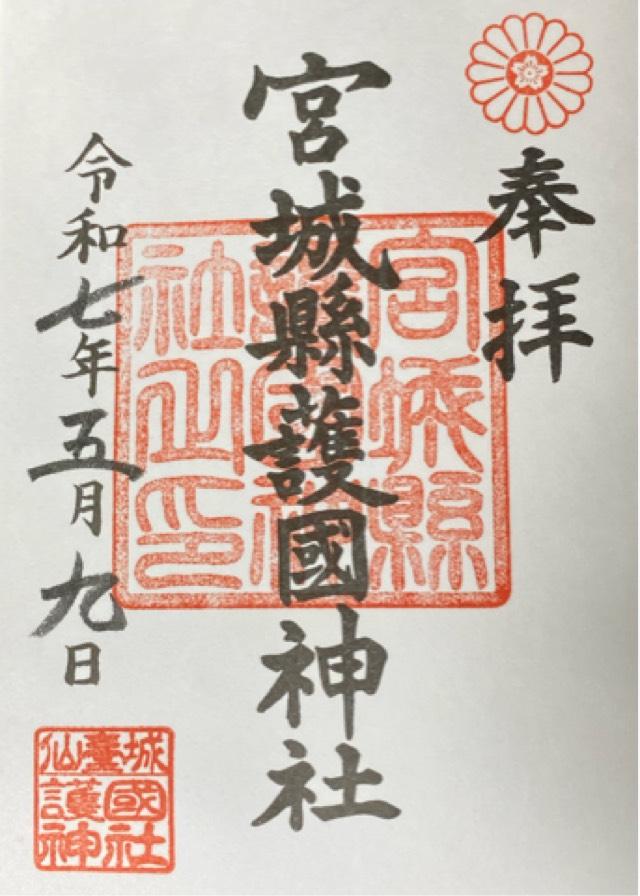 奉拝
宮城縣護國神社
宮城縣
護國神
社之印
令和七年五月九日
仙臺城
護國
神社